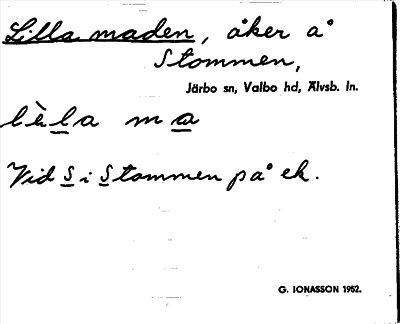 Lilla maden, åker å
Stommen,
Järbo sn, Valbo hd, Älvsb. ln.
lèla ma
Vid S i Stommen på ek.
G. IONASSON 1952.